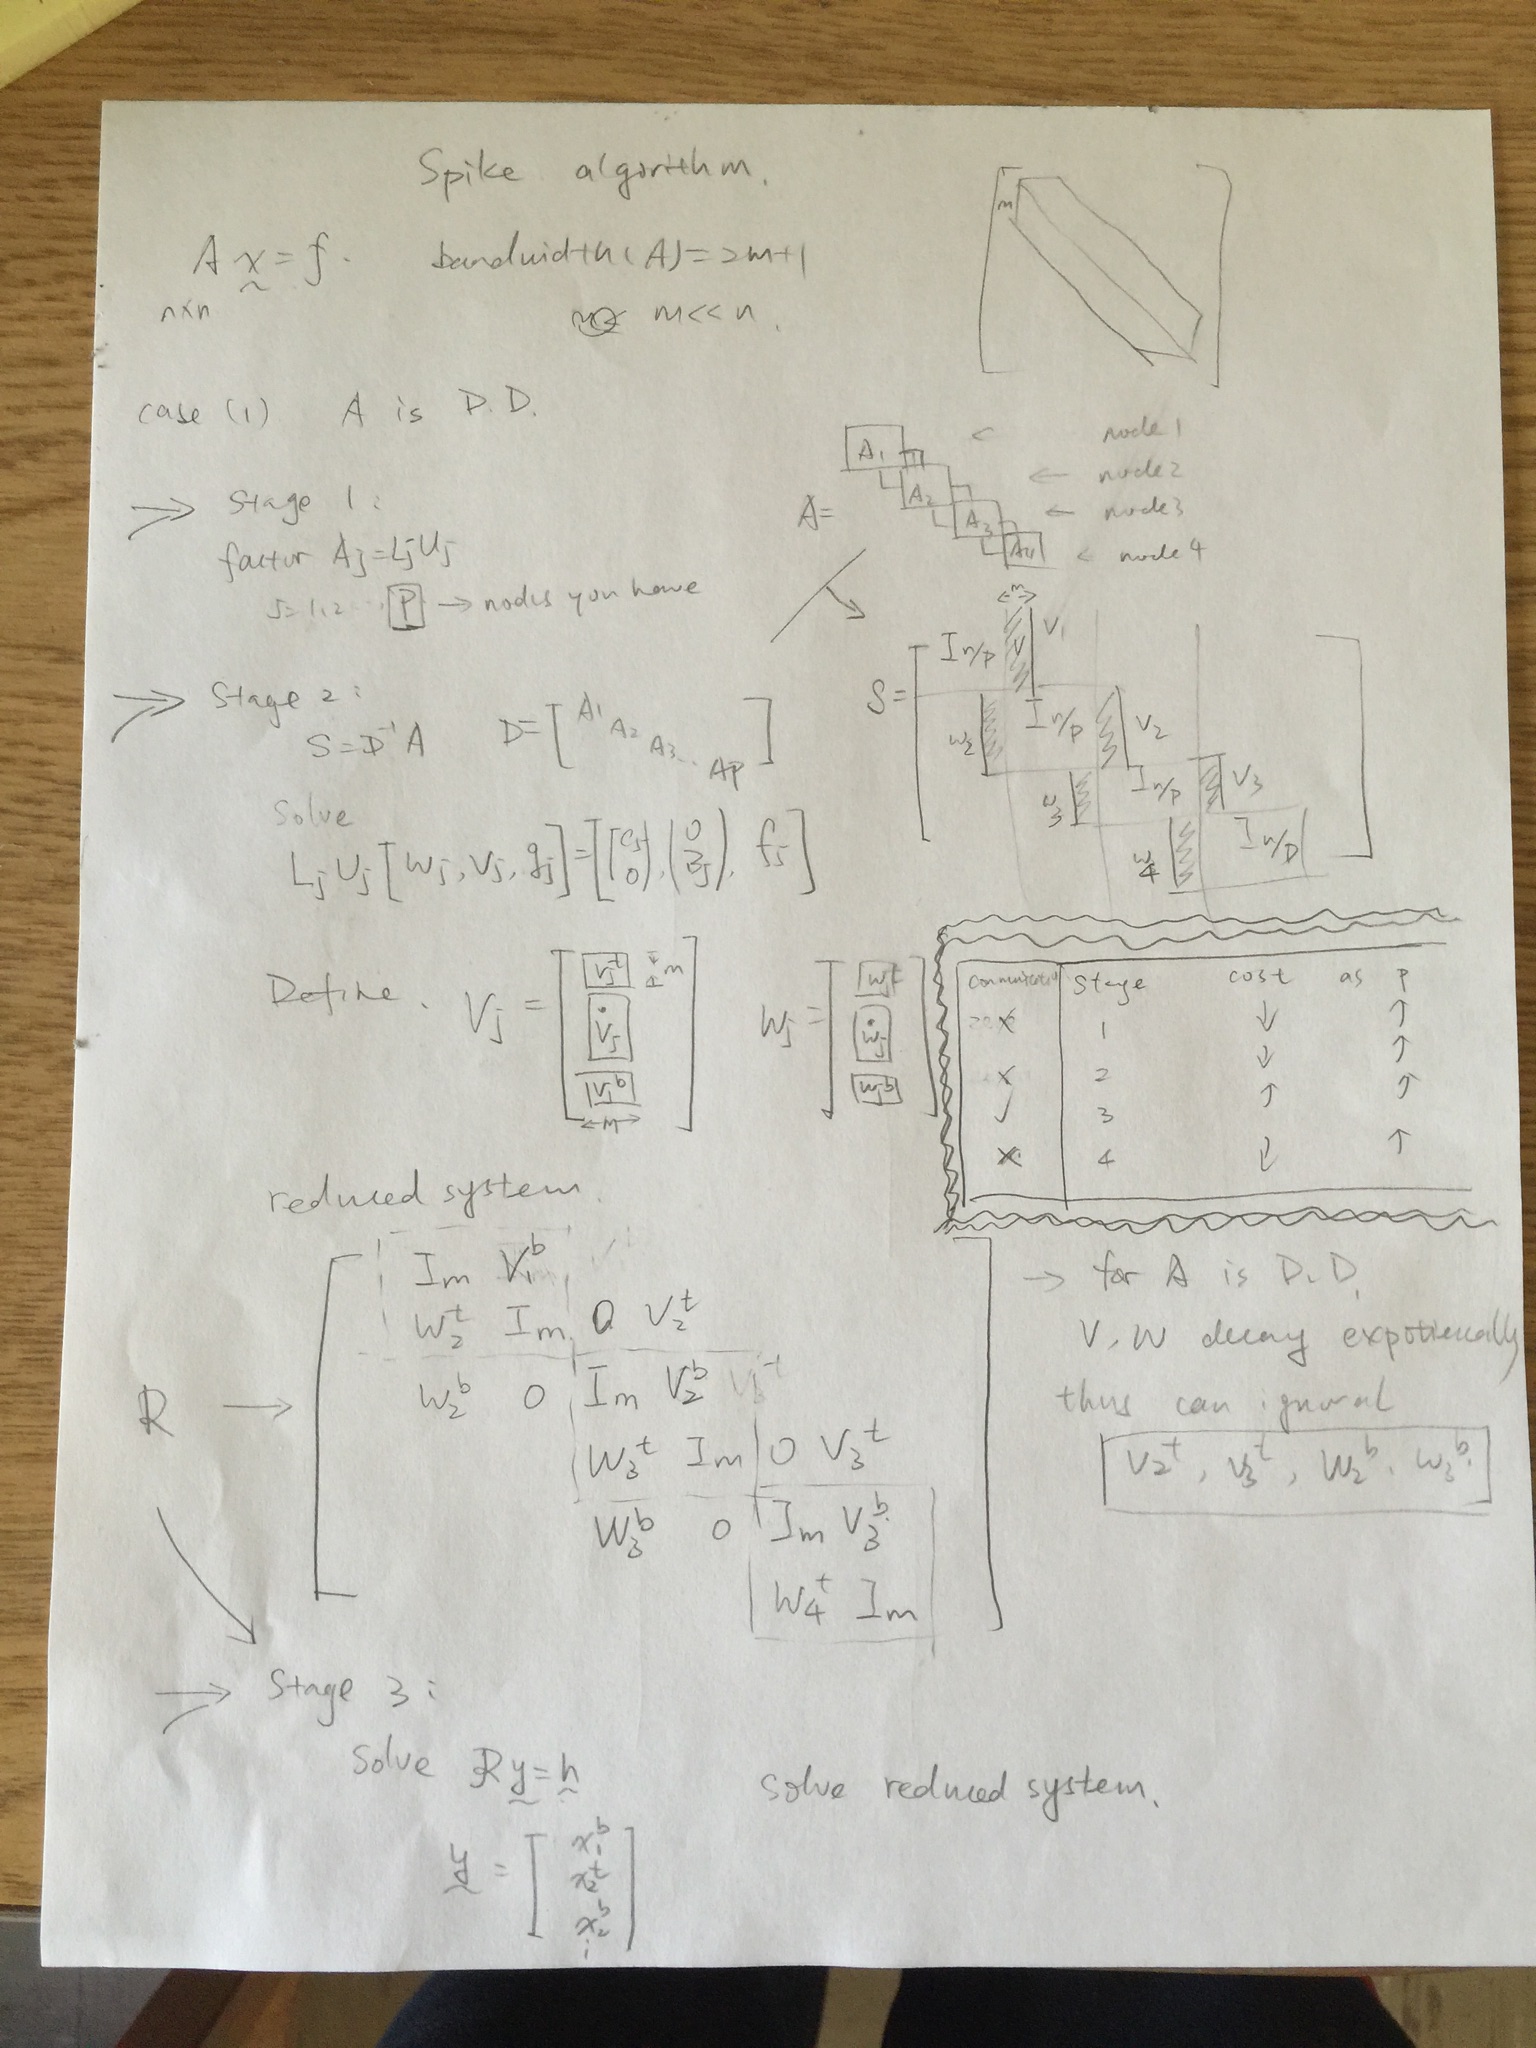 Spike algorithm.
A x = f. bandwidth(A)=2m+1
n×n
m<<n.
m
case (1) A is D.D.
A1 ← node1
A2 ← node2
A= A3 ← node3
A4 ← node4
Stage 1:
factor Aj=LjUj
j=1,2... P → nodes you have
Stage 2:
S=D⁻¹A D=[A1 A2 A3... Ap]
m
S= In/p V1
W2 In/p V2
W3 In/p V3
W4 In/p
Solve
Lj Uj [Wj, Vj, gj]=[(Cj 0), (0 Bj), fj]
Define. Vj = [Vj^t Vj Vj^b] m
m
Wj = [Wj^t Wj Wj^b]
communication stage cost as p
x 1 ↓ ↑
x 2 ↓ ↑
✓ 3 ↑ ↑
x 4 ↓ ↑
reduced system.
Im V1^b
W2^t Im 0 V2^t
R → W2^b 0 Im V2^b
W3^t Im 0 V3^t
W3^b 0 Im V3^b
W4^t Im
→ for A is D.D.
V, W decay expotienally
thus can ignoral
V2^t, V3^t, W2^b, W3^b.
Stage 3:
Solve Ry=h solve reduced system.
y = [x1^b
x2^t
x2^b
⋮]